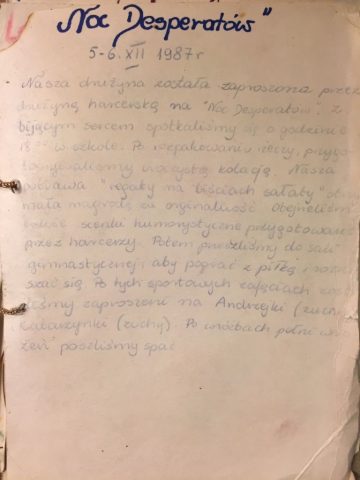 "Noc Desperatów"
5-6.XII 1987r
Nasza drużyna została zaproszona przez
drużynę harcerską na "Noc Desperatów". Z
bijącym sercem spotkaliśmy się o godzinie
18⁰⁰ w szkole. Po rozpakowaniu rzeczy, przygo-
towaliśmy uroczystą kolację. Nasza
potrawa "regaty na liściach sałaty" otrzy-
mała nagrodę za oryginalność. Obejrzeliśmy
scenki humorystyczne przygotowane
przez harcerzy. Potem przeszliśmy do sali
gimnastycznej, aby pograć z piłką i
szać się. Po tych sportowych zajęciach zos-
taliśmy zaproszeni na Andrzejki (zuchy
Katarzynki (zuchy). Po wróżbach pełni wra-
żeń poszliśmy spać